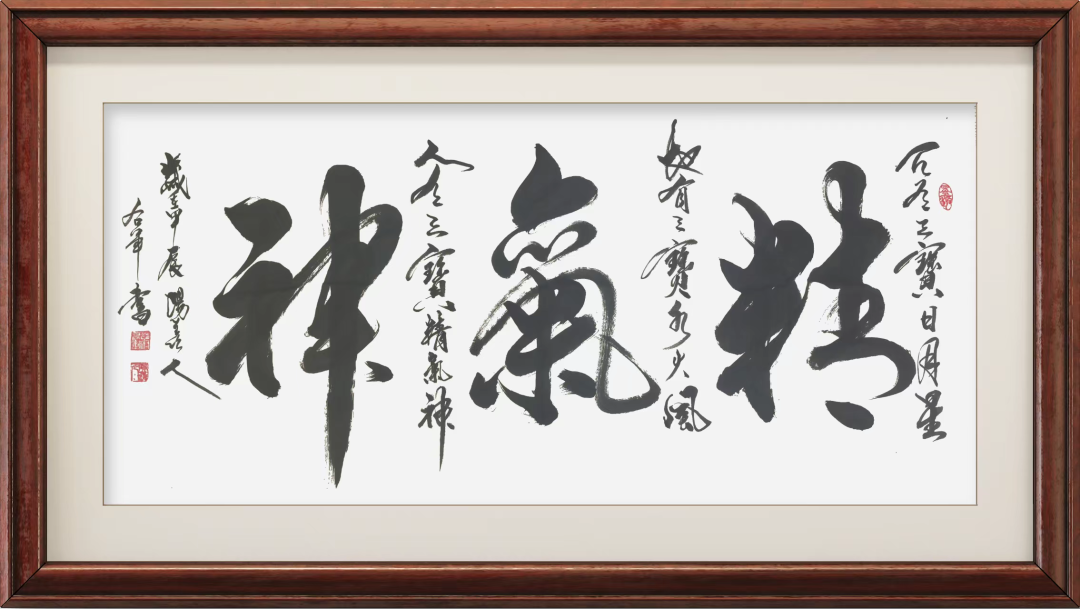 天有三寶日月星
精
地有三寶水火風
氣
人有三寶精氣神
神
歲在甲辰陽羨人
右軍書